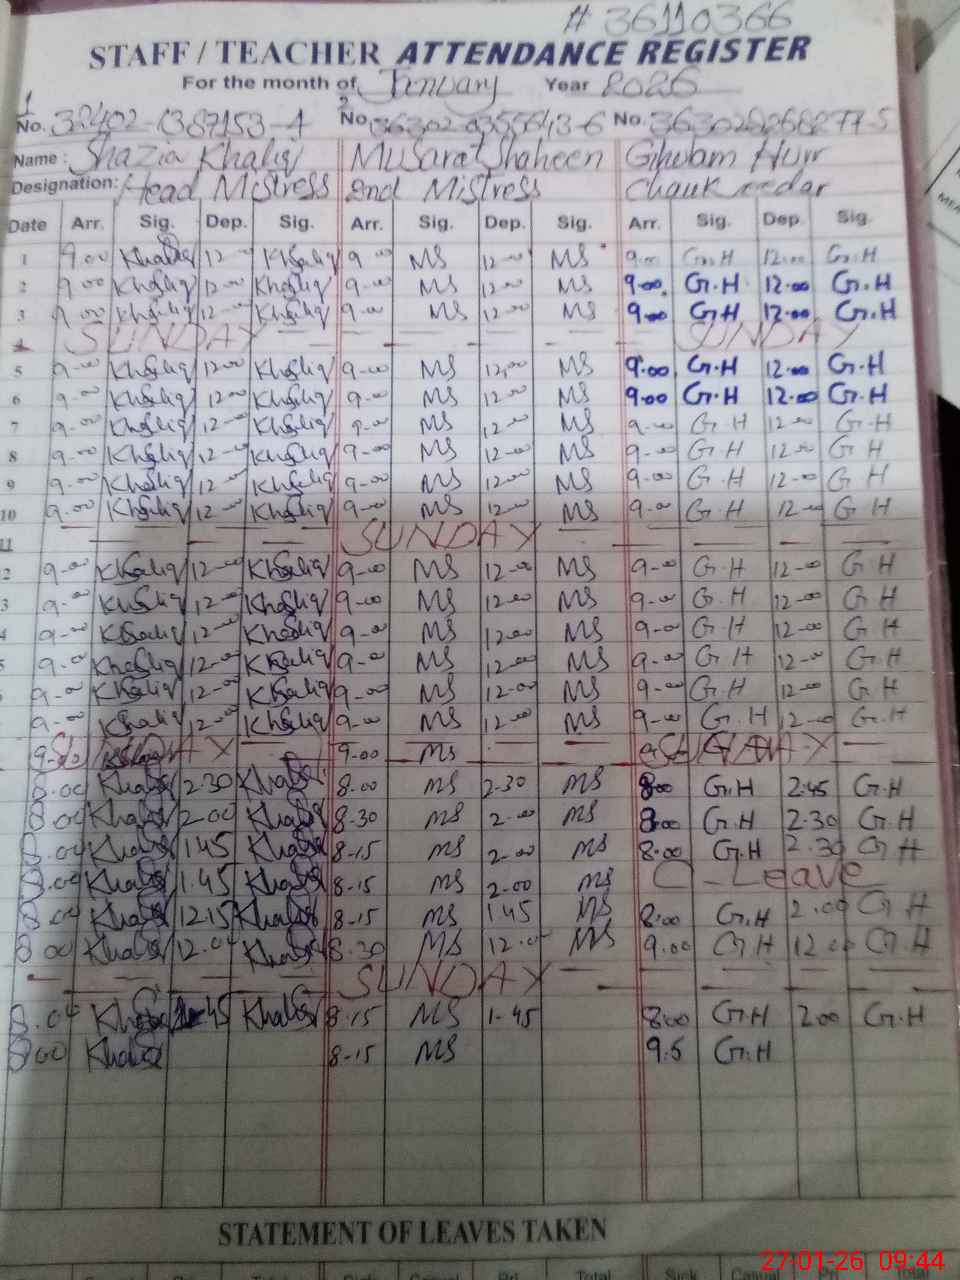 # 36110366
STAFF / TEACHER ATTENDANCE REGISTER
For the month of January Year 2026
1 2
No. No. No.
Name: Shazia Khaliq Musarat Shaheen Ghulam
Designation: Head Mistress 2nd Mistress Chaukeedar
Date Arr. Sig. Dep. Sig. Arr. Sig. Dep. Sig. Arr. Sig. Dep. Sig.
1 9.00 Khaliq 12-00 Khaliq 9-00 MS 12-00 MS 9-00 G.H 12.00 G.H
2 9.00 Khaliq 12-00 Khaliq 9-00 MS 12-00 MS 9.00 G.H 12.00 G.H
3 9.00 Khaliq 12-00 Khaliq 9-00 MS 12-00 MS 9.00 G.H 12.00 G.H
4 SUNDAY SUNDAY
5 9-00 Khaliq 12-00 Khaliq 9-00 MS 12.00 MS 9.00 G.H 12.00 G.H
6 9.00 Khaliq 12.00 Khaliq 9-00 MS 12-00 MS 9.00 G.H 12.00 G.H
7 9-00 Khaliq 12-00 Khaliq 9-00 MS 12-00 MS 9-00 G.H 12-00 G.H
8 9-00 Khaliq 12-00 Khaliq 9-00 MS 12-00 MS 9-00 G.H 12-00 G.H
9 9-00 Khaliq 12-00 Khaliq 9-00 MS 12-00 MS 9-00 G.H 12-00 G.H
10 9-00 Khaliq 12-00 Khaliq 9-00 MS 12-00 MS 9-00 G.H 12-00 G.H
11 SUNDAY
2 9-00 Khaliq 12-00 Khaliq 9-00 MS 12-00 MS 9-00 G.H 12-00 G.H
3 9-00 Khaliq 12-00 Khaliq 9-00 MS 12-00 MS 9-00 G.H 12-00 G.H
4 9-00 Khaliq 12-00 Khaliq 9-00 MS 12.00 MS 9-00 G.H 12-00 G.H
5 9-00 Khaliq 12-00 Khaliq 9-00 MS 12-00 MS 9-00 G.H 12-00 G.H
9-00 Khaliq 12-00 Khaliq 9-00 MS 12-00 MS 9-00 G.H 12-00 G.H
9-00 Khaliq 12-00 Khaliq 9-00 MS 12-00 MS 9-00 G.H 12-00 G.H
SUNDAY 9-00 MS SUNDAY
8.00 Khaliq 2.30 Khaliq 8.00 MS 2-30 MS 8.00 G.H 2.45 G.H
8.00 Khaliq 2.00 Khaliq 8-30 MS 2-00 MS 8.00 G.H 2.30 G.H
8.00 Khaliq 1.45 Khaliq 8-15 MS 2-00 MS 8.00 G.H 2.30 G.H
8.00 Khaliq 1.45 Khaliq 8-15 MS 2.00 MS C-Leave
8.00 Khaliq 12.15 Khaliq 8-15 MS 1.45 MS 8.00 G.H 2.00 G.H
8.00 Khaliq 12.00 Khaliq 8-30 MS 12.00 MS 9.00 G.H 12.00 G.H
SUNDAY
8.00 Khaliq 45 Khaliq 8-15 MS 1-45 8.00 G.H 2.00 G.H
8.00 Khaliq 8-15 MS 9.5 G.H
STATEMENT OF LEAVES TAKEN
Total Sick Casual Total
27-01-26 09:44